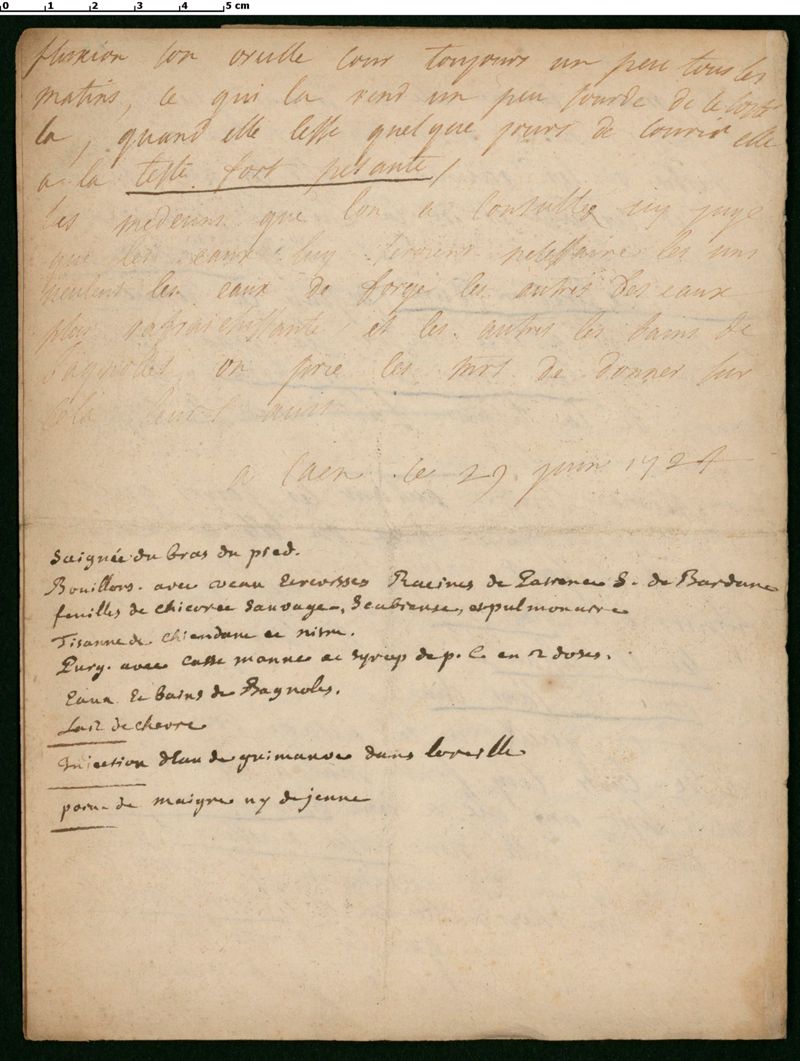 0 1 2 3 4 5 cm
fluxion son oreille cour toujours un peu tous les
matins, ce qui la rend un peu sourde de ce costé
la, quand elle cesse quelque jours de courir elle
a la teste fort pesante /
les medecins que lon a consultés ens juge
que les eaux luy seroient nessessaire les uns
veulent les eaux de forge les autres des eaux
plus rafraichissante et les autres les bains de
Bagnolles, on prie les mrs de donner sur
cela leurs avis
a Caen ce 29 juin 1724
Saignée du bras du pied.
Bouillons. avec veau Ecrevisses Racines de Patience S. de Bardane
feuilles de chicorée Sauvage, Scabieuse, et pulmonaire
Tisanne de chiendane et nitre.
Purg. avec Casse manne et Syrop de p. C. en 2 doses.
Eaux Et bains de Bagnoles.
Lait de chevre
Injection d'Eau de guimauve dans loreille
point de maigre ny de jeune